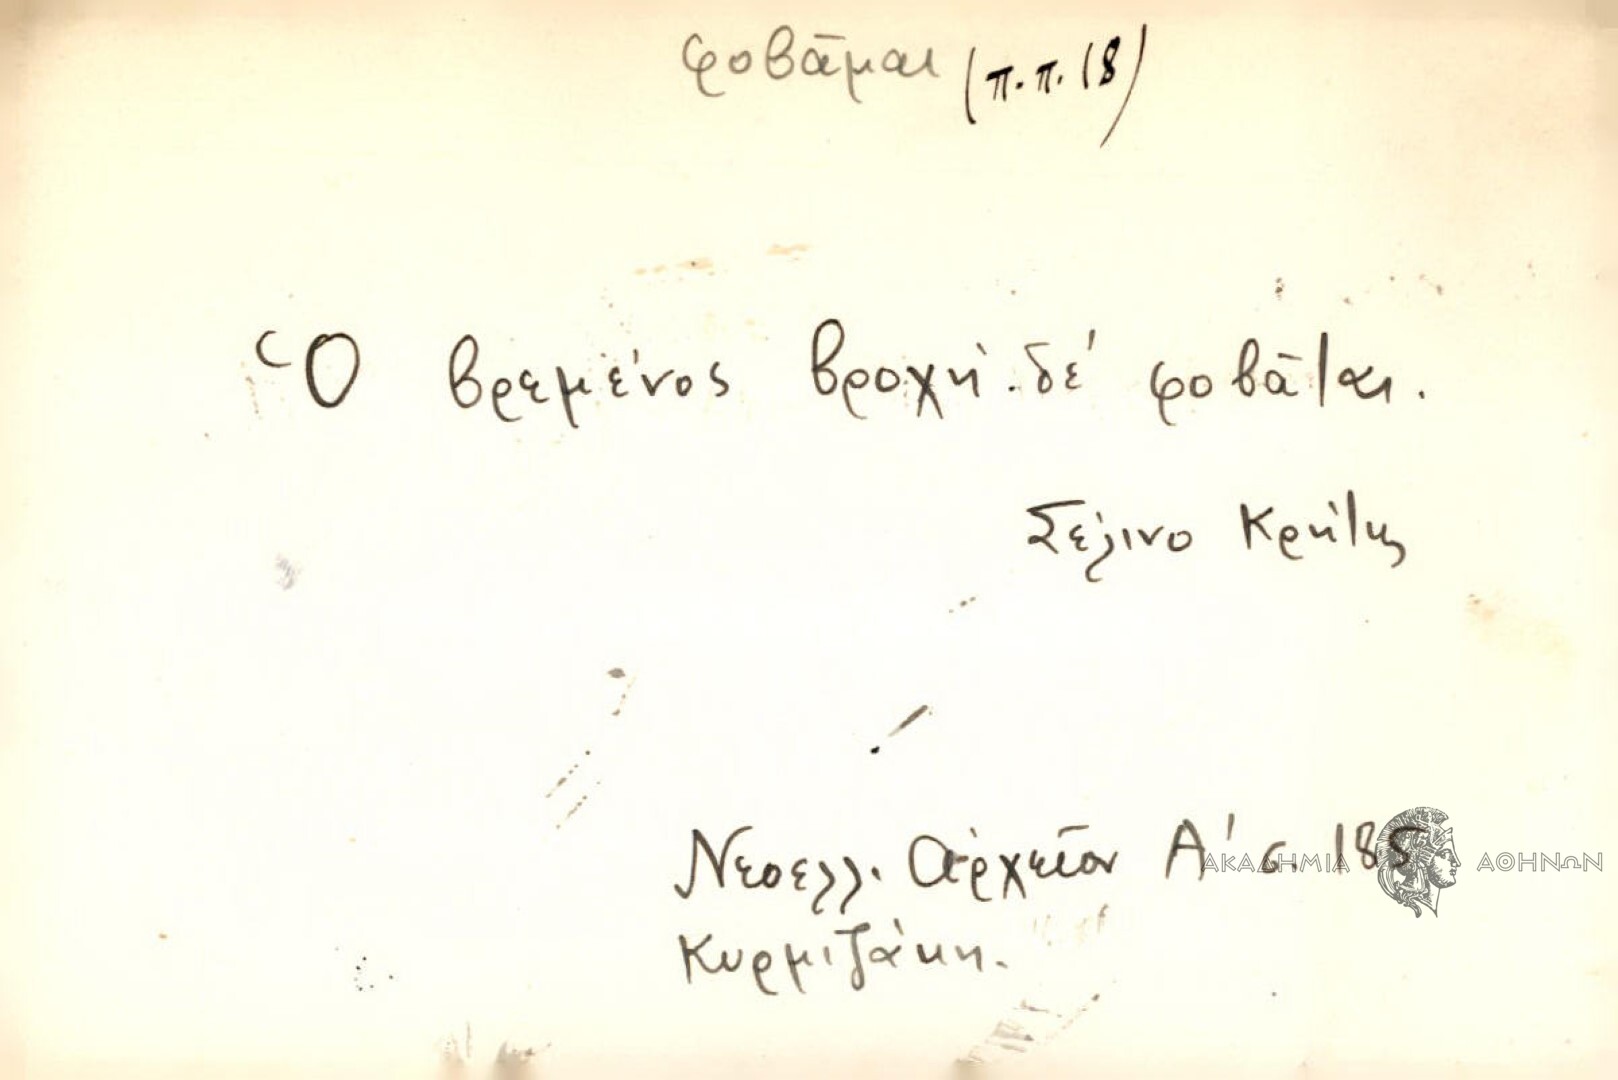 φοβᾶμαι (π.π. 18)
Ὁ βρεμένος βροχή δέ φοβᾶται.
Σέλινο Κρήτης
Νεοελλ. Ἀρχεῖον Α' σ. 185
Κυρμιζάκη.
ΑΚΑΔΗΜΙΑ ΑΘΗΝΩΝ